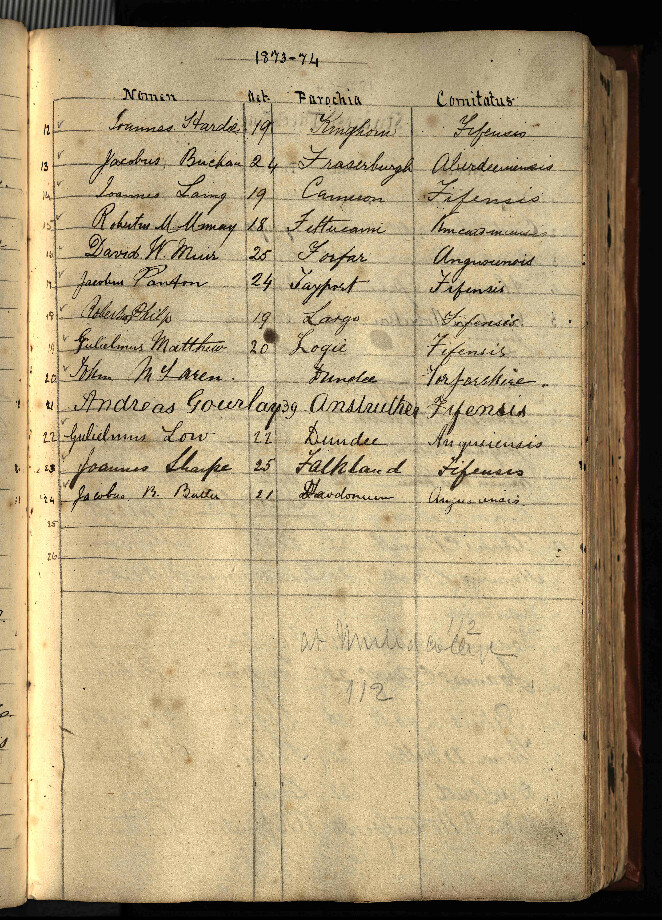 1873-74
Nomen Aet. Parochia Comitatus
12 Ioannes Hardie 19 Kinghorn Fifensis
13 Jacobus Buchan 24 Fraserburgh Aberdeenensis
14 Ioannes Laing 19 Cameron Fifensis
15 Robertus M 18 Fettercairn
16 David W. Muir 25 Forfar Angusensis
17 Jacobus Panton 24 Tayport Fifensis
18 Robertus Philp 19 Largo Fifensis
19 Gulielmus Matthew 20 Logie Fifensis
20 John McLaren. Dundee Forfarshire.
21 Andreas Gourlay 39 Anstruther Fifensis
22 Gulielmus Low 22 Dundee Angusiensis
23 Joannes Sharpe 25 Falkland Fifensis
24 Jacobus B. Butter 21 Angusensis.
25
26
112
at United College
112